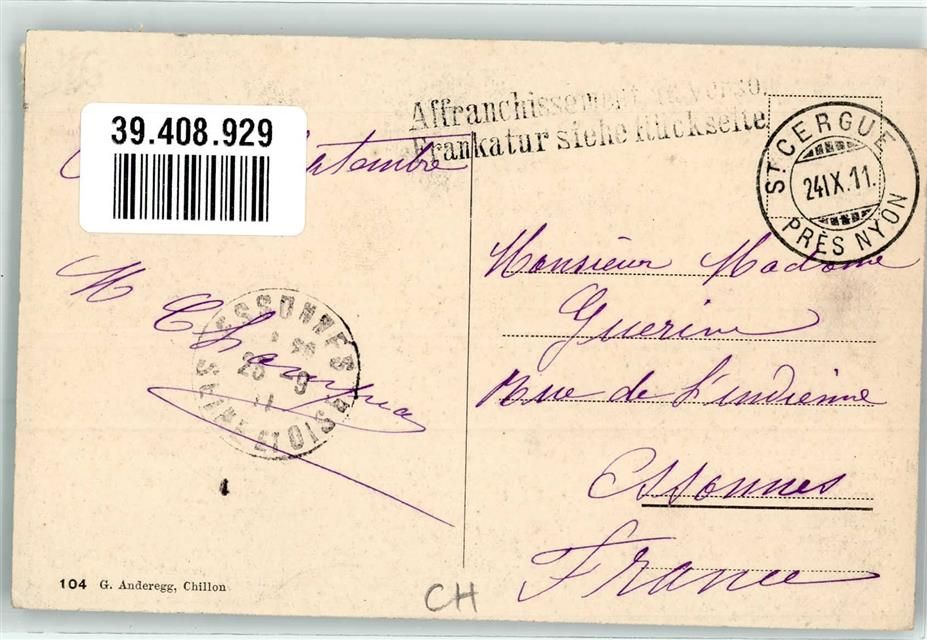 39.408.929
Affranchissement au verso.
Frankatur siehe Rückseite
ST. CERGUE
24 IX.11.
PRÈS NYON
Monsieur Madame
Guerine
Rue de l'indienne
Essonnes
France
M Champua
ESSONNES
25 9
11
SEINE ET OISE
104 G. Anderegg, Chillon
CH